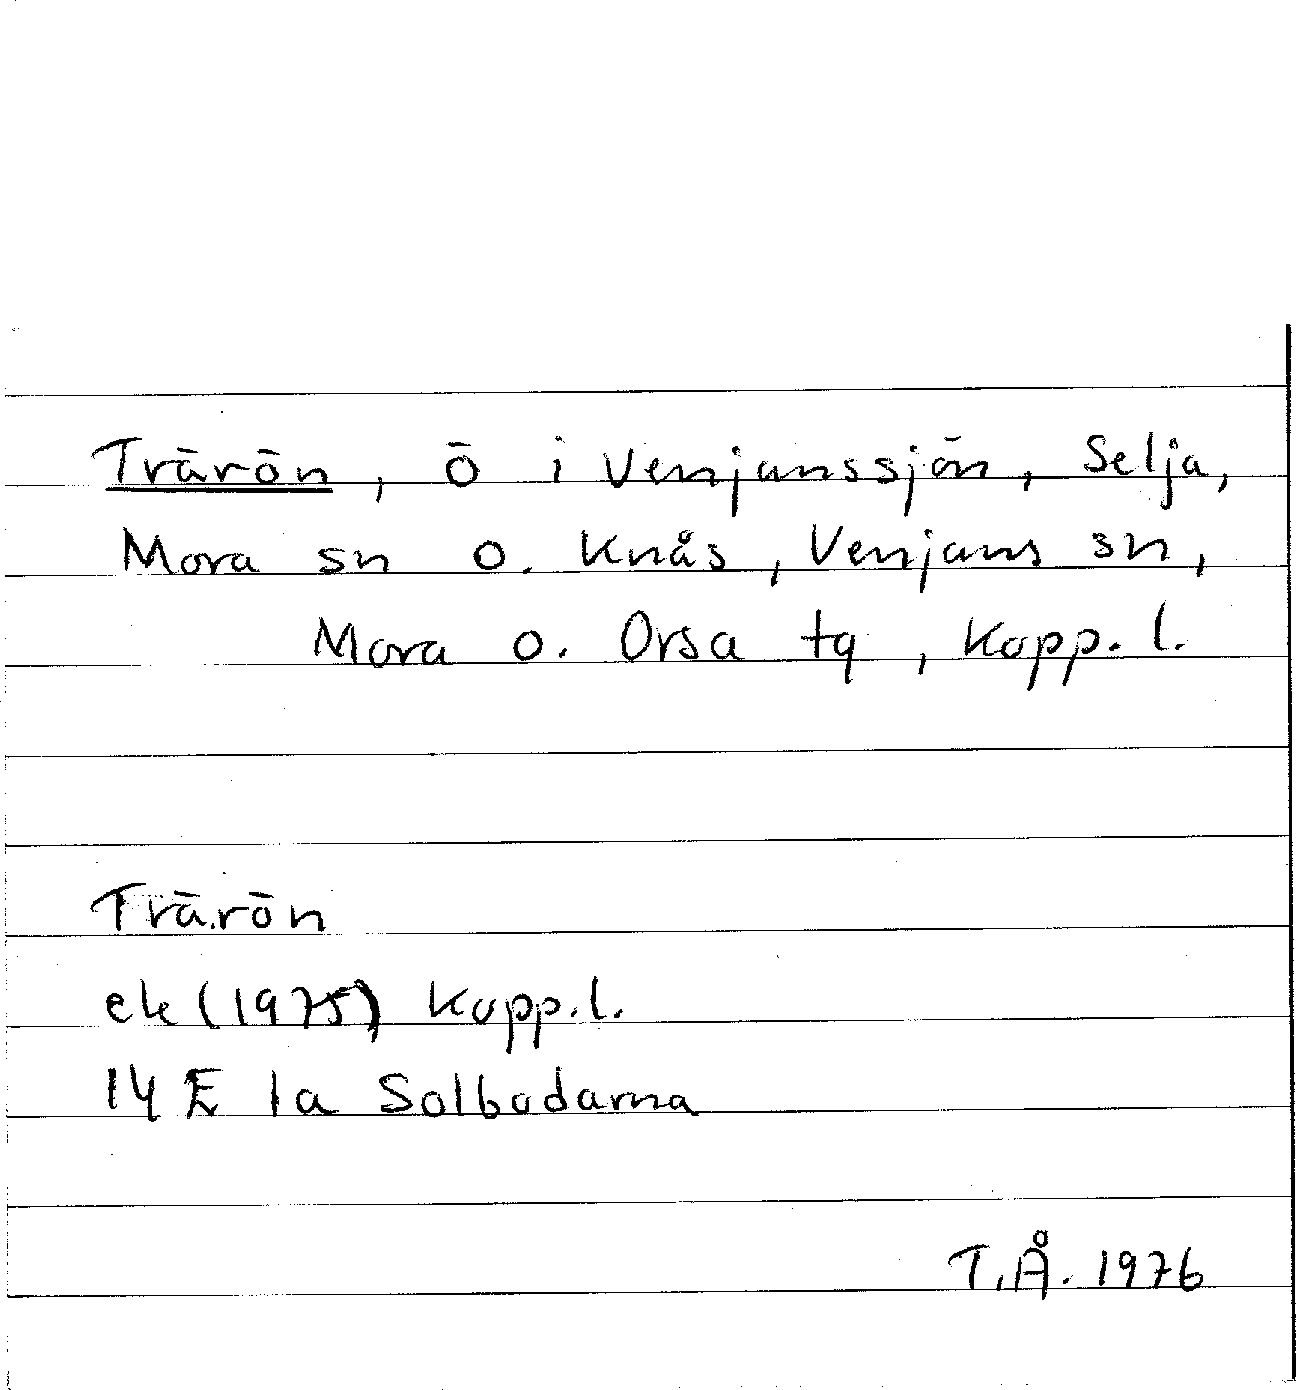 Trärön, ö i Venjanssjön, Selja,
Mora sn o. Knås, Venjans sn,
Mora o. Orsa tg, Kopp. l.
Trärön
ek (1975) Kopp. l.
14 E 1a Solbodarna
T.Å. 1976